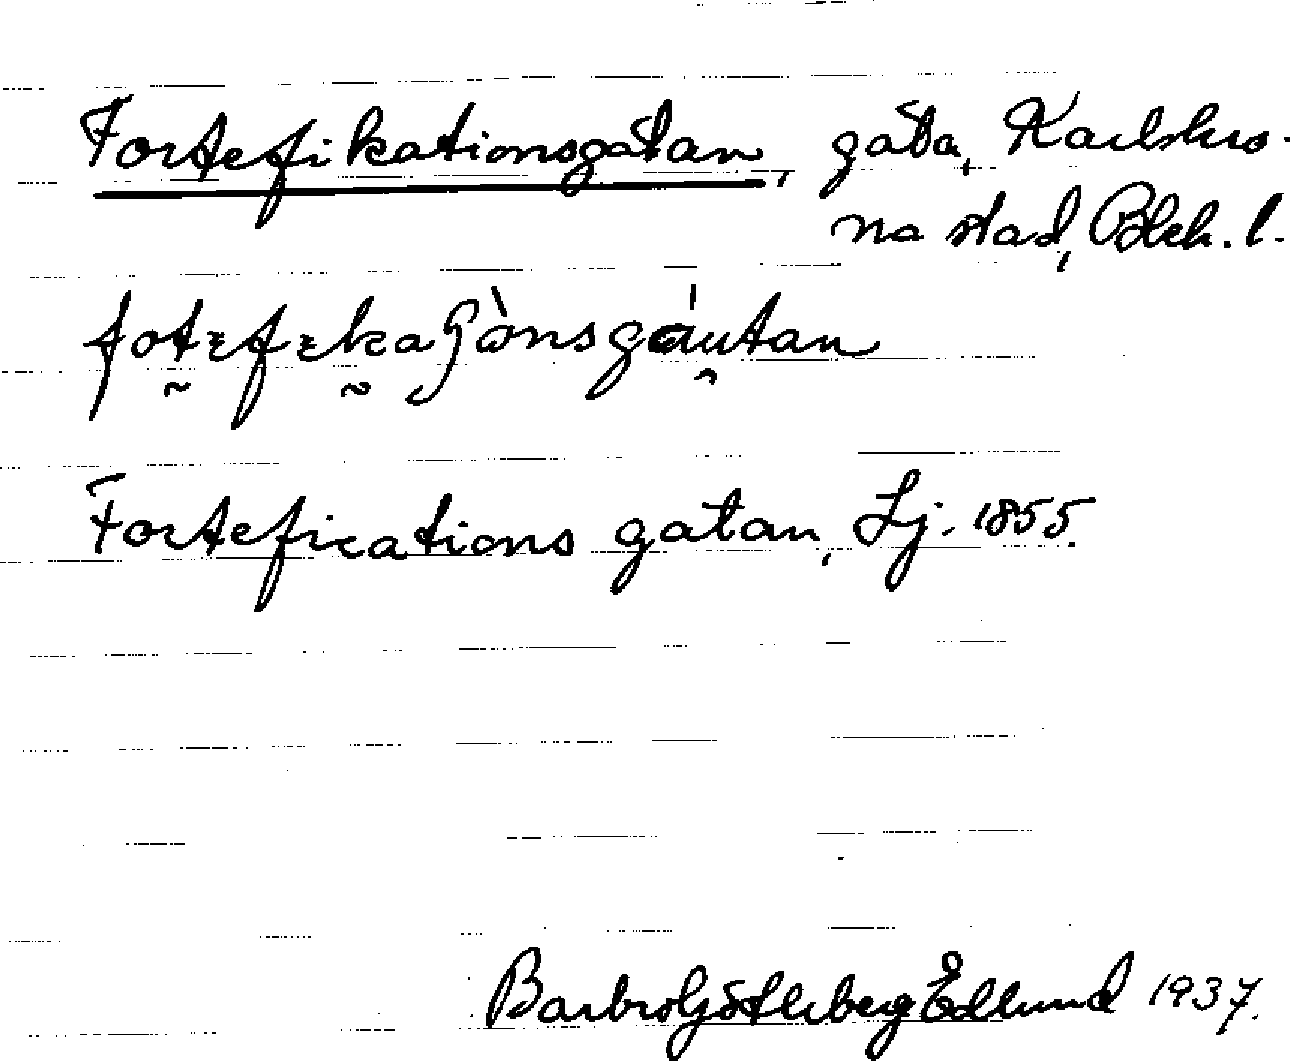 Fortefikationsgatan, gata, Karlskro-
na stad, Blek. l.
Fortefications gatan, Lj. 1855.
Barbro Götleberg Edlund 1937.